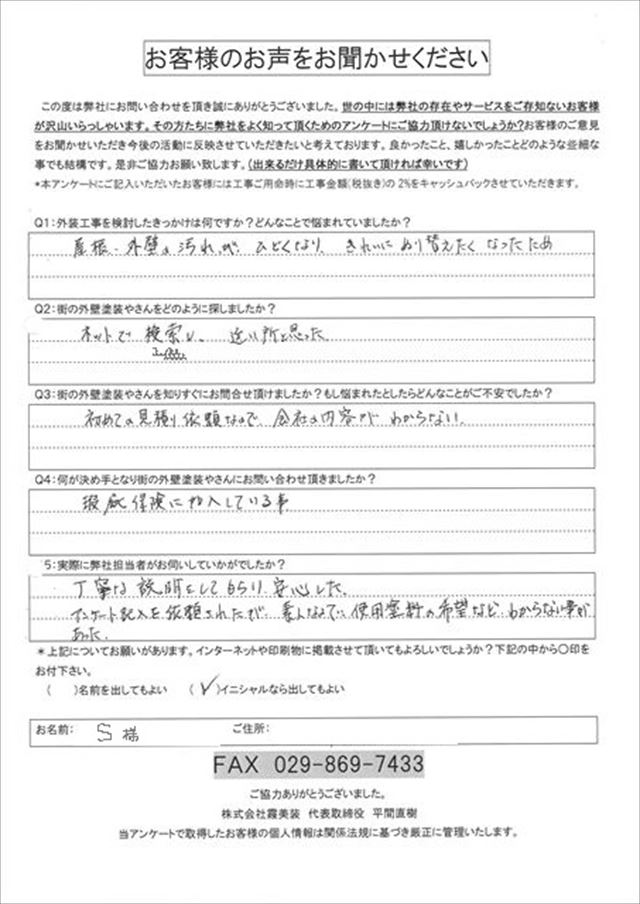 お客様のお声をお聞かせください
この度は弊社にお問い合わせを頂き誠にありがとうございました。世の中には弊社の存在やサービスをご存知ないお客様
が沢山いらっしゃいます。その方たちに弊社をよく知って頂くためのアンケートにご協力頂けないでしょうか?お客様のご意見
をお聞かせいただき今後の活動に反映させていただきたいと考えております。良かったこと、嬉しかったことどのような些細な
事でも結構です。是非ご協力お願い致します。(出来るだけ具体的に書いて頂ければ幸いです)
*本アンケートにご記入いただいたお客様には工事ご用命時に工事金額(税抜き)の 2%をキャッシュバックさせていただきます。
Q1:外装工事を検討したきっかけは何ですか?どんなことで悩まれていましたか?
屋根、外壁の汚れが、ひどくなり、きれいにぬり替えたくなったため
Q2:街の外壁塗装やさんをどのように探しましたか?
ネットで検索し、近い所と思った
Q3:街の外壁塗装やさんを知りすぐにお問合せ頂けましたか?もし悩まれたとしたらどんなことがご不安でしたか?
初めての見積り依頼なので、会社の内容がわからない。
Q4:何が決め手となり街の外壁塗装やさんにお問い合わせ頂きましたか?
瑕疵保険に加入している事
5:実際に弊社担当者がお伺いしていかがでしたか?
丁寧な説明をしてもらい、安心した。
アンケート記入を依頼されたが、素人なので、使用塗料の希望など、わからない事が
あった。
*上記についてお願いがあります。インターネットや印刷物に掲載させて頂いてもよろしいでしょうか?下記の中から○印を
お付下さい。
( )名前を出してもよい (✓)イニシャルなら出してもよい
お名前: S 様 ご住所:
FAX 029-869-7433
ご協力ありがとうございました。
株式会社霞美装 代表取締役 平間直樹
当アンケートで取得したお客様の個人情報は関係法規に基づき厳正に管理いたします。